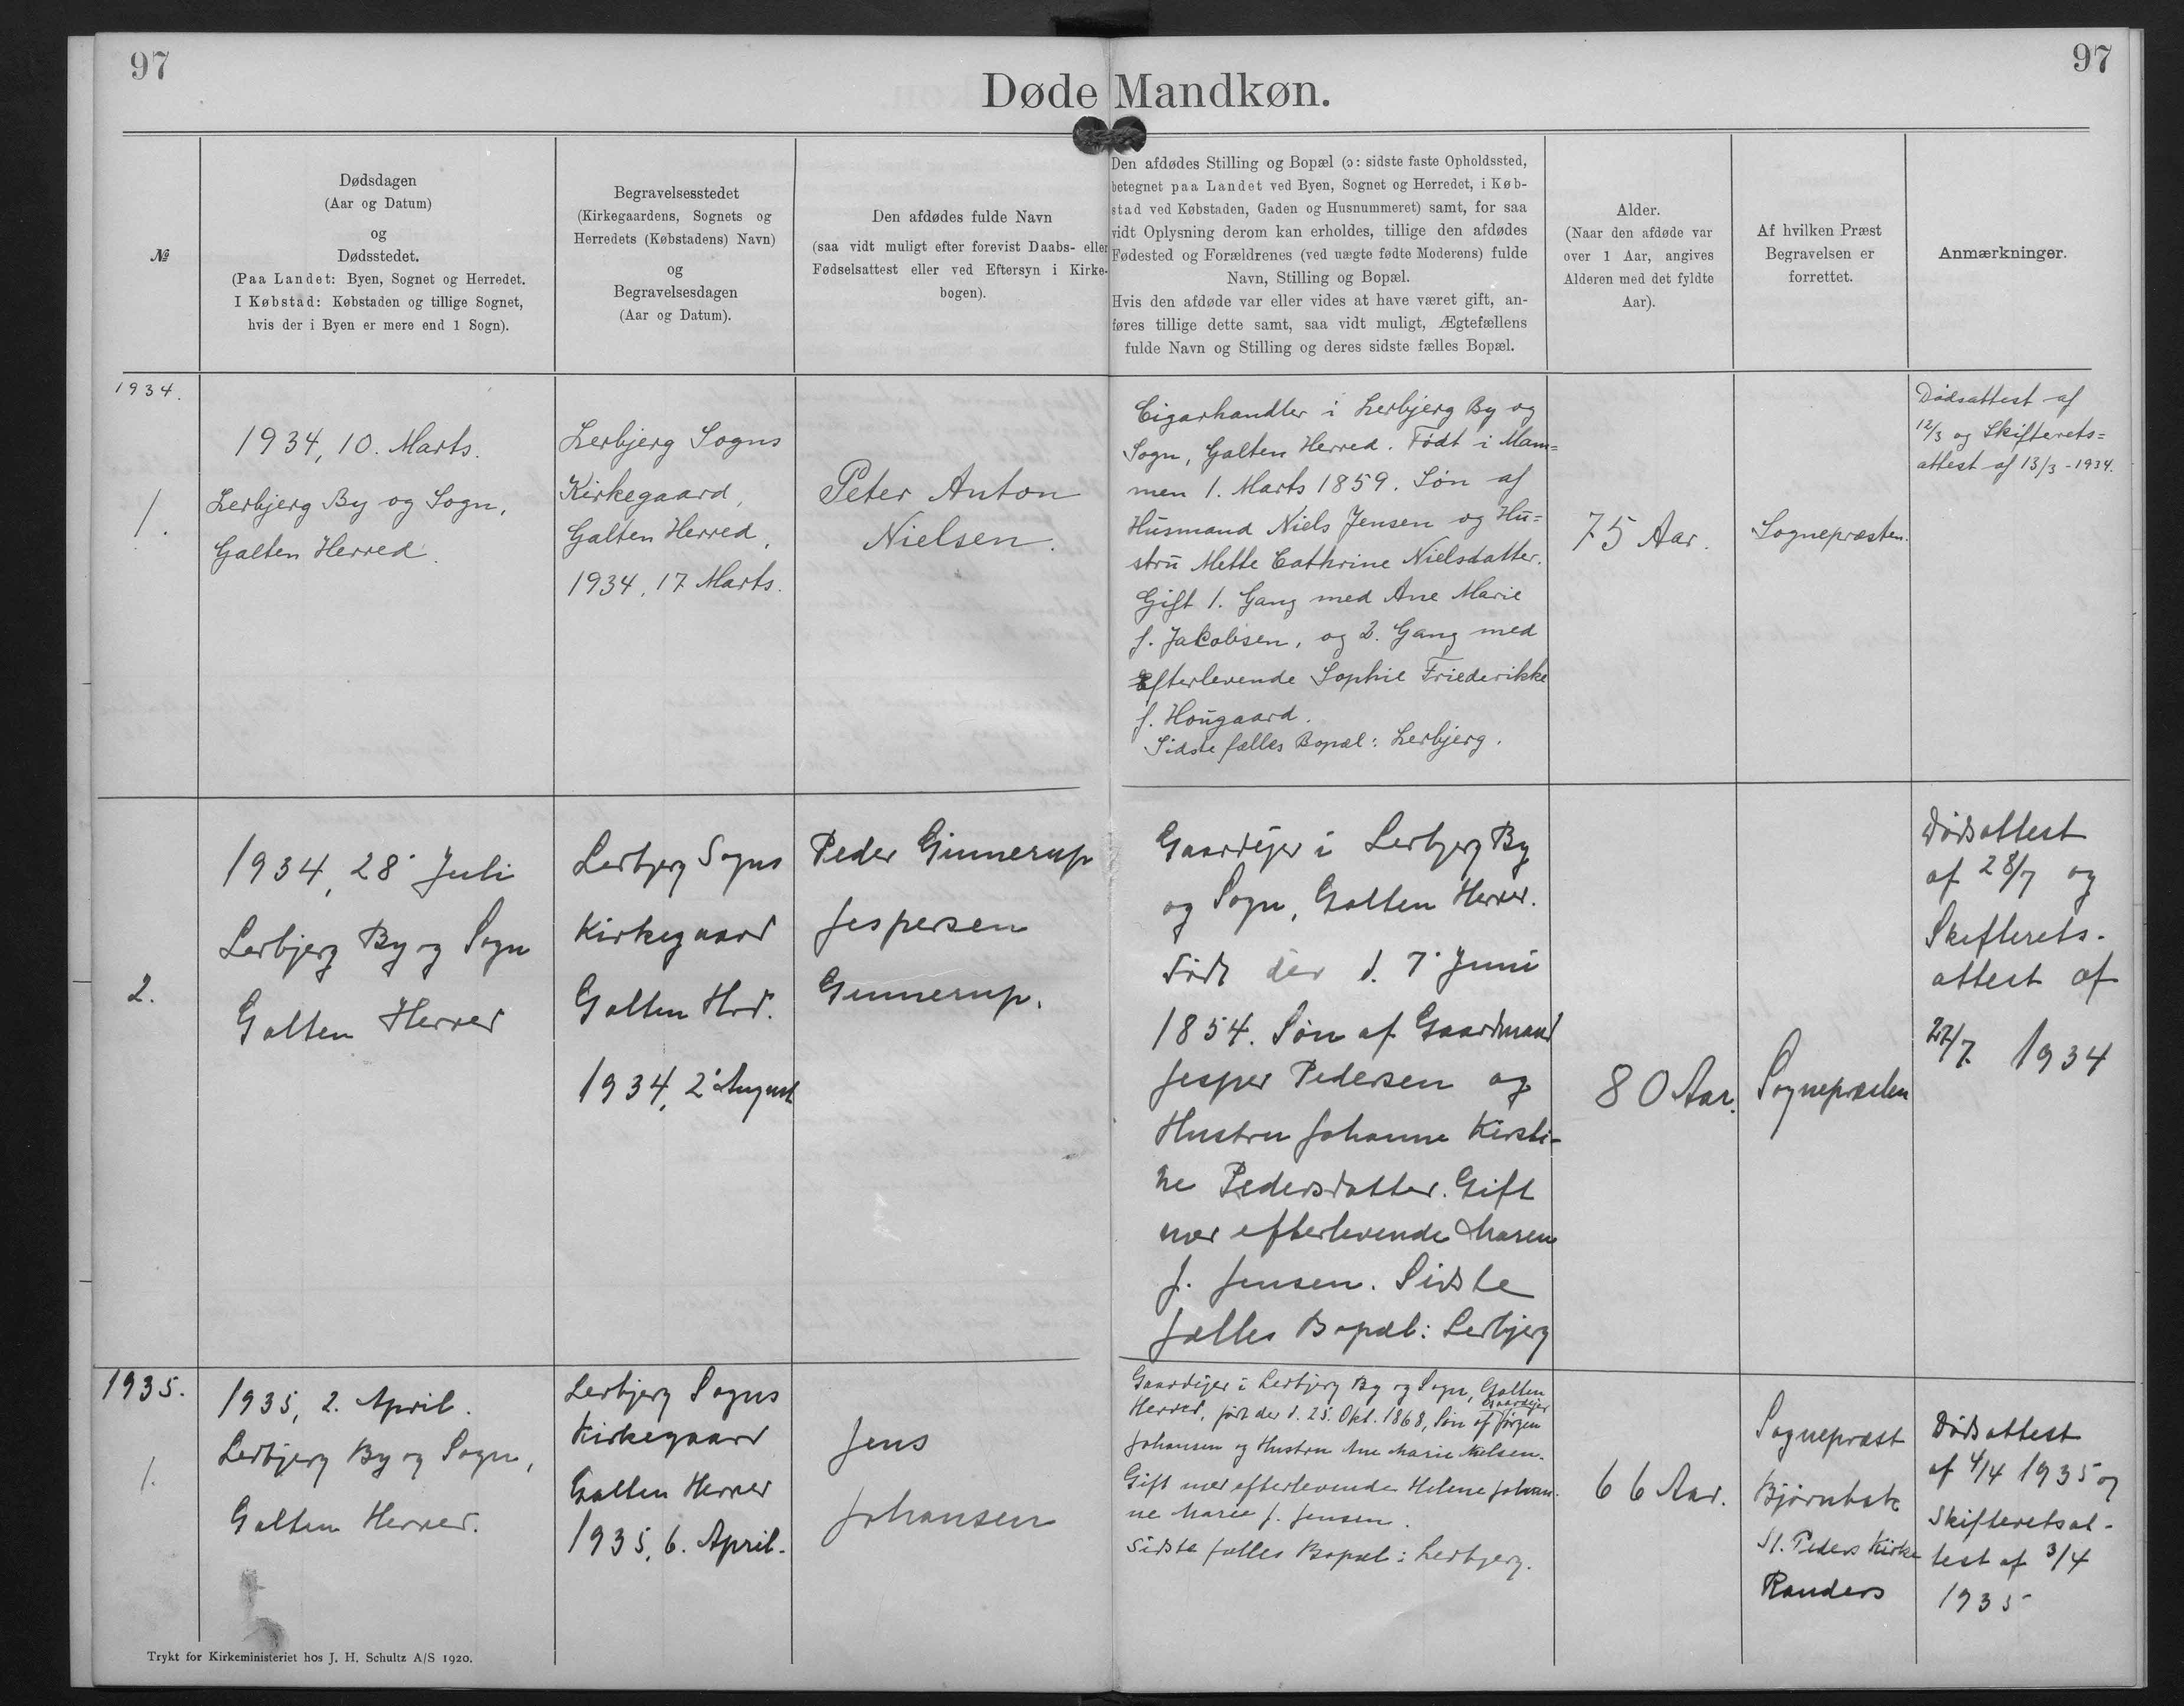 97
97
Døde Mandkøn.
№
Dødsdagen
(Aar og Datum)
og
Dødsstedet.
(Paa Landet: Byen, Sognet og Herredet.
I Købstad: Købstaden og tillige Sognet,
hvis der i Byen er mere end 1 Sogn).
Begravelsesstedet
(Kirkegaardens, Sognets og
Herredets (Købstadens) Navn)
og
Begravelsesdagen
(Aar og Datum).
Den afdødes fulde Navn
(saa vidt muligt efter forevist Daabs- eller
Fødselsattest eller ved Eftersyn i Kirke-
bogen).
Den afdødes Stilling og Bopæl (ɔ: sidste faste Opholdssted,
betegnet paa Landet ved Byen, Sognet og Herredet, i Køb-
stad ved Købstaden, Gaden og Husnummeret) samt, for saa
vidt Oplysning derom kan erholdes, tillige den afdødes
Fødested og Forældrenes (ved uægte fødte Moderens) fulde
Navn, Stilling og Bopæl.
Hvis den afdøde var eller vides at have været gift, an-
føres tillige dette samt, saa vidt muligt, Ægtefællens
fulde Navn og Stilling og deres sidste fælles Bopæl.
Alder.
(Naar den afdøde var
over 1 Aar, angives
Alderen med det fyldte
Aar).
Af hvilken Præst
Begravelsen er
forrettet.
Anmærkninger.
1934.
1.
1934, 10. Marts.
Lerbjerg By og Sogn,
Galten Herred.
Lerbjerg Sogns
Kirkegaard,
Galten Herred,
1934, 17. Marts.
Peter Anton
Nielsen.
Cigarhandler i Lerbjerg By og
Sogn, Galten Herred. Født i Mam=
men 1. Marts 1859. Søn af
Husmand Niels Jensen og Hu=
stru Mette Cathrine Nielsdatter.
Gift 1. Gang med Ane Marie
f. Jakobsen, og 2. Gang med
Efterlevende Sophie Friederikke
f. Hougaard.
Sidste fælles Bopæl: Lerbjerg.
75 Aar.
Sognepræsten.
Dødsattest af
12/3 og Skifterets=
attest af 13/3-1934.
2.
1934, 28' Juli
Lerbjerg By og Sogn
Galten Herred
Lerbjerg Sogns
Kirkegaard
Galten Hrd.
1934, 2' August
Peder Ginnerup
Jespersen
Ginnerup.
Gaardejer i Lerbjerg By
og Sogn, Galten Herred.
Født der d. 7' Juni
1854. Søn af Gaardmand
Jesper Pedersen og
Hustru Johanne Kirsti-
ne Pedersdatter. Gift
med efterlevende Maren
f. Jensen. Sidste
fælles Bopæl: Lerbjerg
80 Aar.
Sognepræsten
Dødsattest
af 28/7 og
Skifterets-
attest af
27/7 1934
1935.
1.
1935, 2. April.
Lerbjerg By og Sogn,
Galten Herred.
Lerbjerg Sogns
Kirkegaard
Galten Herred
1935, 6. April.
Jens
Johansen
Gaardejer i Lerbjerg By og Sogn, Galten
Herred, født der d. 25. Okt. 1868, Søn af Gaardejer Jørgen
Johansen og Hustru Ane Marie Nielsen.
Gift med efterlevende Helene Johan-
ne Marie f. Jensen.
Sidste fælles Bopæl: Lerbjerg.
66 Aar.
Sognepræst
St. Peders Kirke
Randers
Dødsattest
af 4/4 1935 og
Skifteretsat-
test af 3/4
1935
Trykt for Kirkeministeriet hos J. H. Schultz A/S 1920.